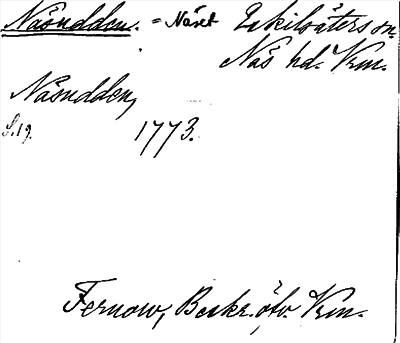 Näsudden. = Näset Eskilsäters sn.
Näs hd. Vrm.
Näsudden,
S. 19. 1773.
Fernow, Beskr. öfv. Vrm.